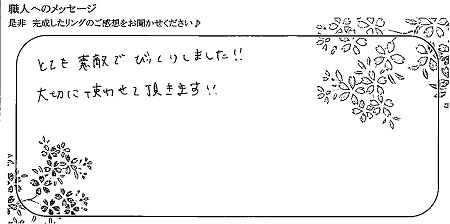 職人へのメッセージ
是非 完成したリングのご感想をお聞かせください♪
とても素敵でびっくりしました!!
大切に使わせて頂きます!!